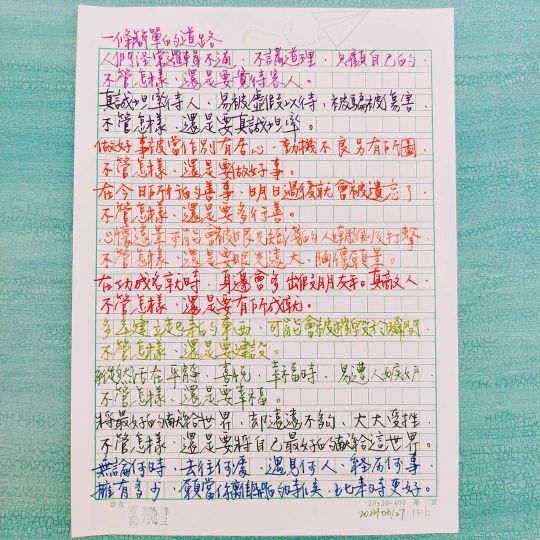 一條簡單的道路
人們經常邏輯不通、不講道理、只顧自己的、
不管怎樣、還是要寬待客人。
真誠坦率待人、易被虛假以待、被騙被傷害、
不管怎樣、還是要真誠坦率。
做好事被當作別有居心、動機不良另有所圖、
不管怎樣、還是要做好事。
在今日所行的善事、明日過後就會被遺忘了、
不管怎樣、還是要多行善。
心懷遠景可能會被眼光短淺的人連腳 打擊、
不管怎樣、還是要眼光遠大、胸懷願景。
在功成名就時、身邊會多出假朋友。真敵人、
不管怎樣、還是要有所成就。
多年建立起來的東西、可能會被摧毀於瞬間、
不管怎樣、還是要建設。
活在平靜、喜悅、幸福時、易遭人嫉妒、
不管怎樣、還是要幸福。
將最好的 給世界、卻遠遠不夠的、大大受挫、
不管怎樣、還是要將自己最好的 給這世界。
無論何時、去往何處、遇見何人、經历何事、
擁有多少、願當你離開的時候、比來時更好。
20x20=400
第 頁
2024/06/27